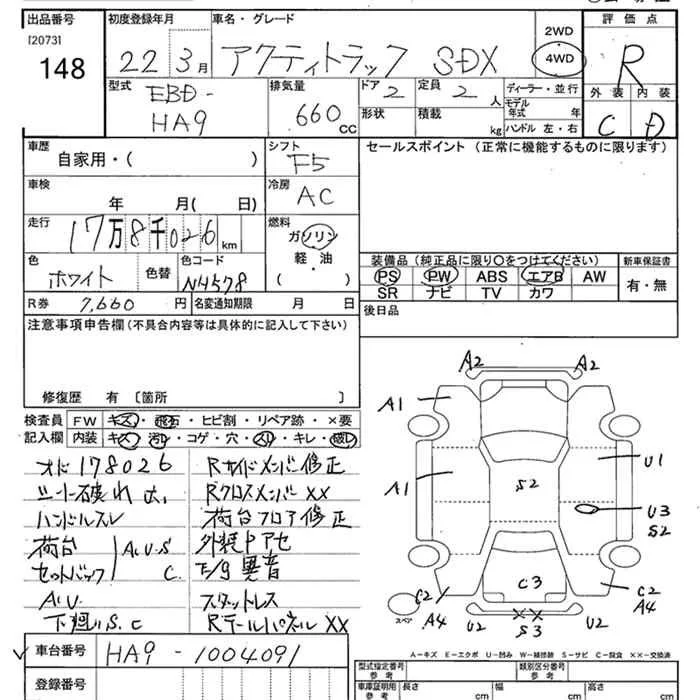 出品番号
[2073]
148
初度登録年月
22 3月
車名・グレード
アクティトラック SDX
2WD
4WD
評価点
R
外装 内装
C D
型式
EBD-
HA9
排気量
660 CC
ドア 2
定員 2 人
形状
積載 kg
ディーラー・並行
モデル年式 年
ハンドル 左・右
車歴
自家用・( )
シフト
F5
セールスポイント(正常に機能するものに限ります)
車検
年 月( 日)
冷房
AC
走行
17万8千026km
燃料
ガソリン
軽・油
( )
色
ホワイト
色替
色コード
NH578
装備品(純正品に限り○をつけてください)
新車保証書
PS PW ABS エアB AW
SR ナビ TV カワ
有・無
R券 7,660円
名変通知期限 月 日
後日品
注意事項申告欄(不具合内容等は具体的に記入して下さい)
修復歴 有 〔箇所 〕
検査員
記入欄
FW キズ・飛石・ヒビ割・リペア跡・×要
内装 キズ・汚レ・コゲ・穴・スリ・キレ・破レ
オド178026
シート破れ大
ハンドルスレ
荷台
セットバック
A.U.S
C.
A.U.
下廻りS.C
Rサイドメンバ修正
RクロスメンバXX
荷台フロア修正
外装中アセ
E/g異音
スタットレス
RテールパネルXX
A2 A2
A1
U1
A1
S2
U3
S2
C3
C2
A4
C2
A4
スペア
U2
XX
S3
U2
車台番号
HA9-1004091
登録番号
A-キズ E-エクボ U-凹み W-補修跡 S-サビ C-腐食 XX-交換済
型式指定番号
参考
類別区分番号
参考
車庫証明用
参考
長さ cm
幅 cm
高さ cm